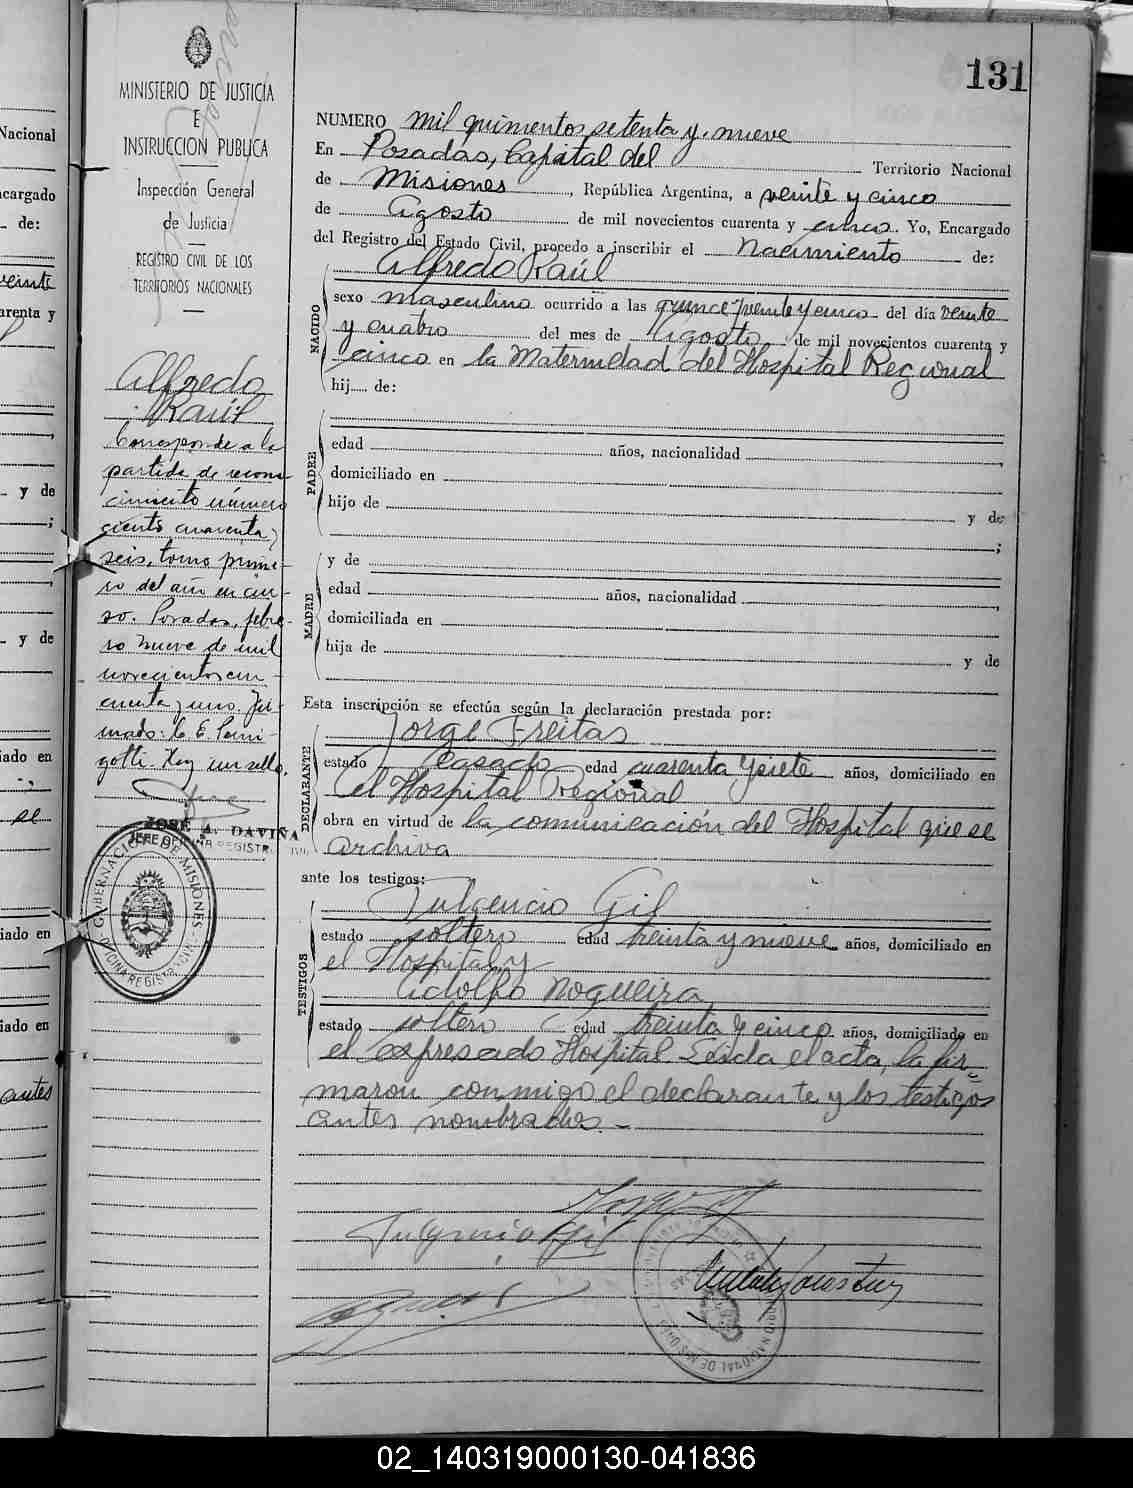 131
MINISTERIO DE JUSTICIA
E
INSTRUCCION PUBLICA
Inspección General
de Justicia
REGISTRO CIVIL DE LOS
TERRITORIOS NACIONALES
Alfredo
Raúl
Corresponde a la
partida de recono
cimiento número
ciento cuarenta y
seis, tomo prime-
ro del año en cur-
so. Posadas, febre-
ro nueve de mil
novecientos cin-
cuenta y uno. Fir-
mado: C. E.
Hay un sello.
JOSÉ A. DAVIÑA
JEFE OFICINA REGISTRO CIVIL
GOBERNACION DE MISIONES
OFICINA REGISTRO CIVIL
NUMERO mil quinientos setenta y nueve
En Posadas, Capital del Territorio Nacional
de Misiones, República Argentina, a veinte y cinco
de Agosto de mil novecientos cuarenta y cinco. Yo, Encargado
del Registro del Estado Civil, procedo a inscribir el Nacimiento de:
Alfredo Raúl
NACIDO
sexo masculino ocurrido a las quince y veinte y cinco del día veinte
y cuatro del mes de Agosto de mil novecientos cuarenta y
cinco en la Maternidad del Hospital Regional
hij..... de:
PADRE
edad años, nacionalidad ,
domiciliado en
hijo de y de
;
MADRE
y de
edad años, nacionalidad ,
domiciliada en
hija de y de
Esta inscripción se efectúa según la declaración prestada por:
Jorge Freitas
DECLARANTE
estado casado edad cuarenta y siete años, domiciliado en
el Hospital Regional
obra en virtud de la comunicación del Hospital que se
archiva
ante los testigos:
Fulgencio Gil
TESTIGOS
estado soltero edad treinta y nueve años, domiciliado en
el Hospital y
Adolfo Nogueira
estado soltero edad treinta y cinco años, domiciliado en
el expresado Hospital. Leída el acta, la fir=
maron conmigo el declarante y los testigos
antes nombrados.-
Fulgencio Gil
Nacional
ncargado
de:
veinte
arenta y
y de
;
y de
iado en
se
iado en
iado en
antes
02_140319000130-041836